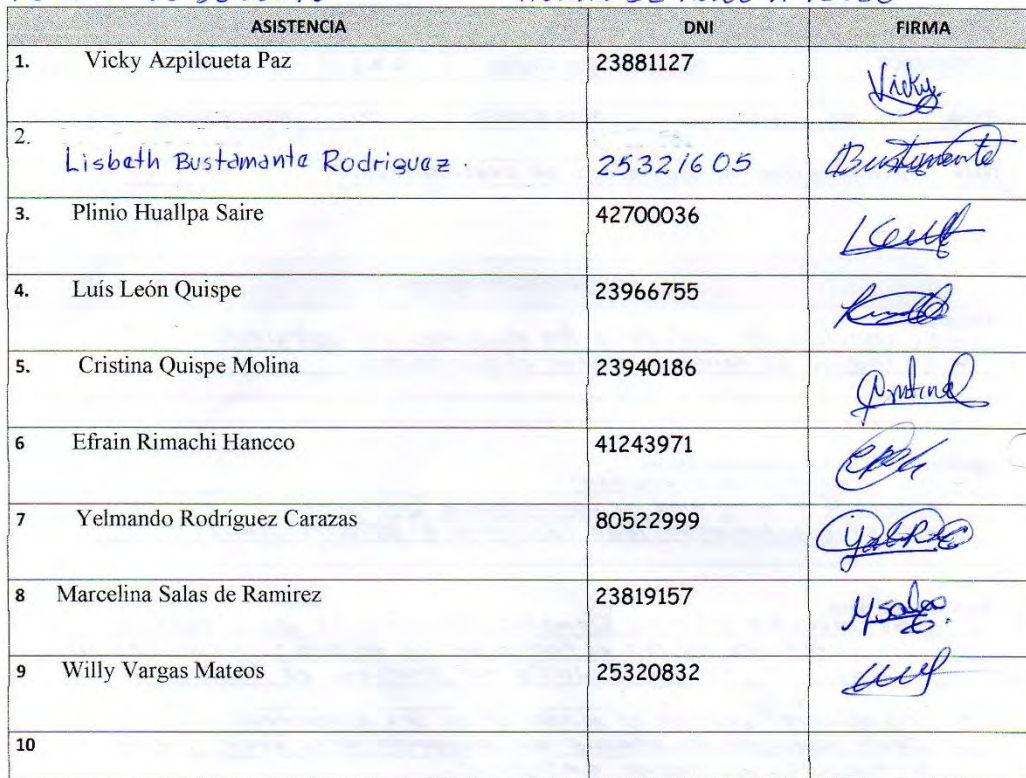 ASISTENCIA DNI FIRMA
1. Vicky Azpilcueta Paz 23881127 Vicky
2. Lisbeth Bustamante Rodriguez. 25321605 Bustamante
3. Plinio Huallpa Saire 42700036
4. Luís León Quispe 23966755
5. Cristina Quispe Molina 23940186
6 Efrain Rimachi Hancco 41243971
7 Yelmando Rodríguez Carazas 80522999
8 Marcelina Salas de Ramirez 23819157
9 Willy Vargas Mateos 25320832
10